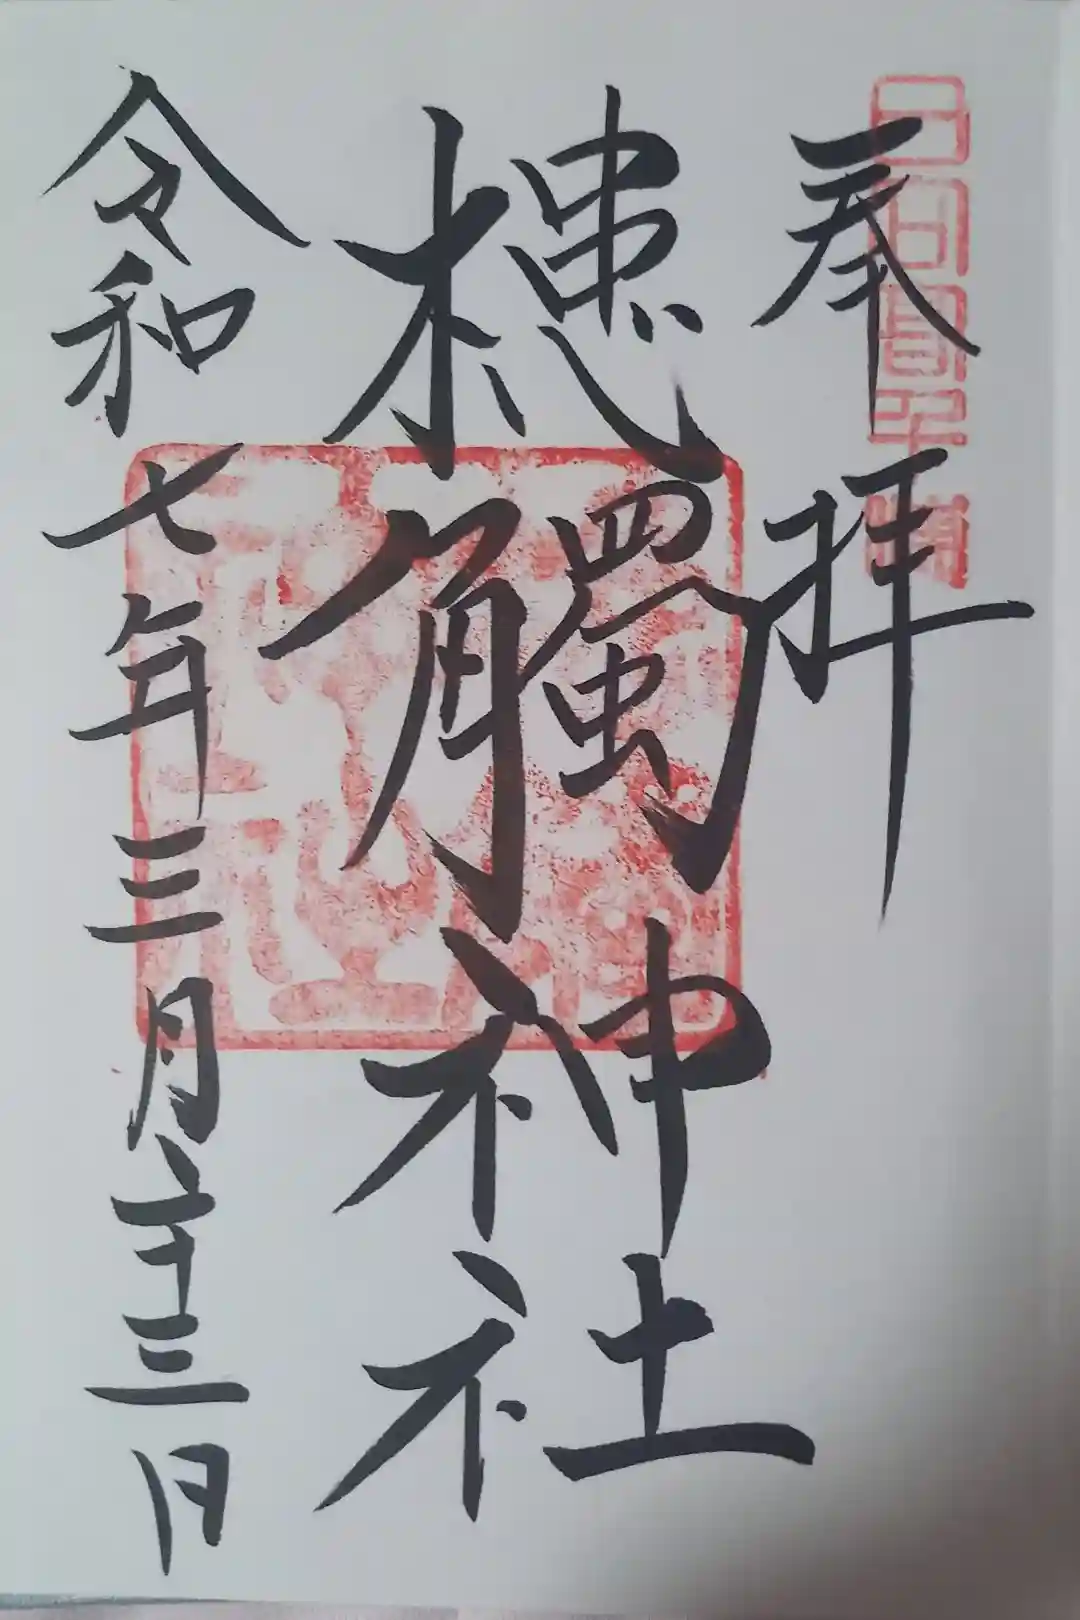 奉拝
槵觸神社
令和七年三月二十三日